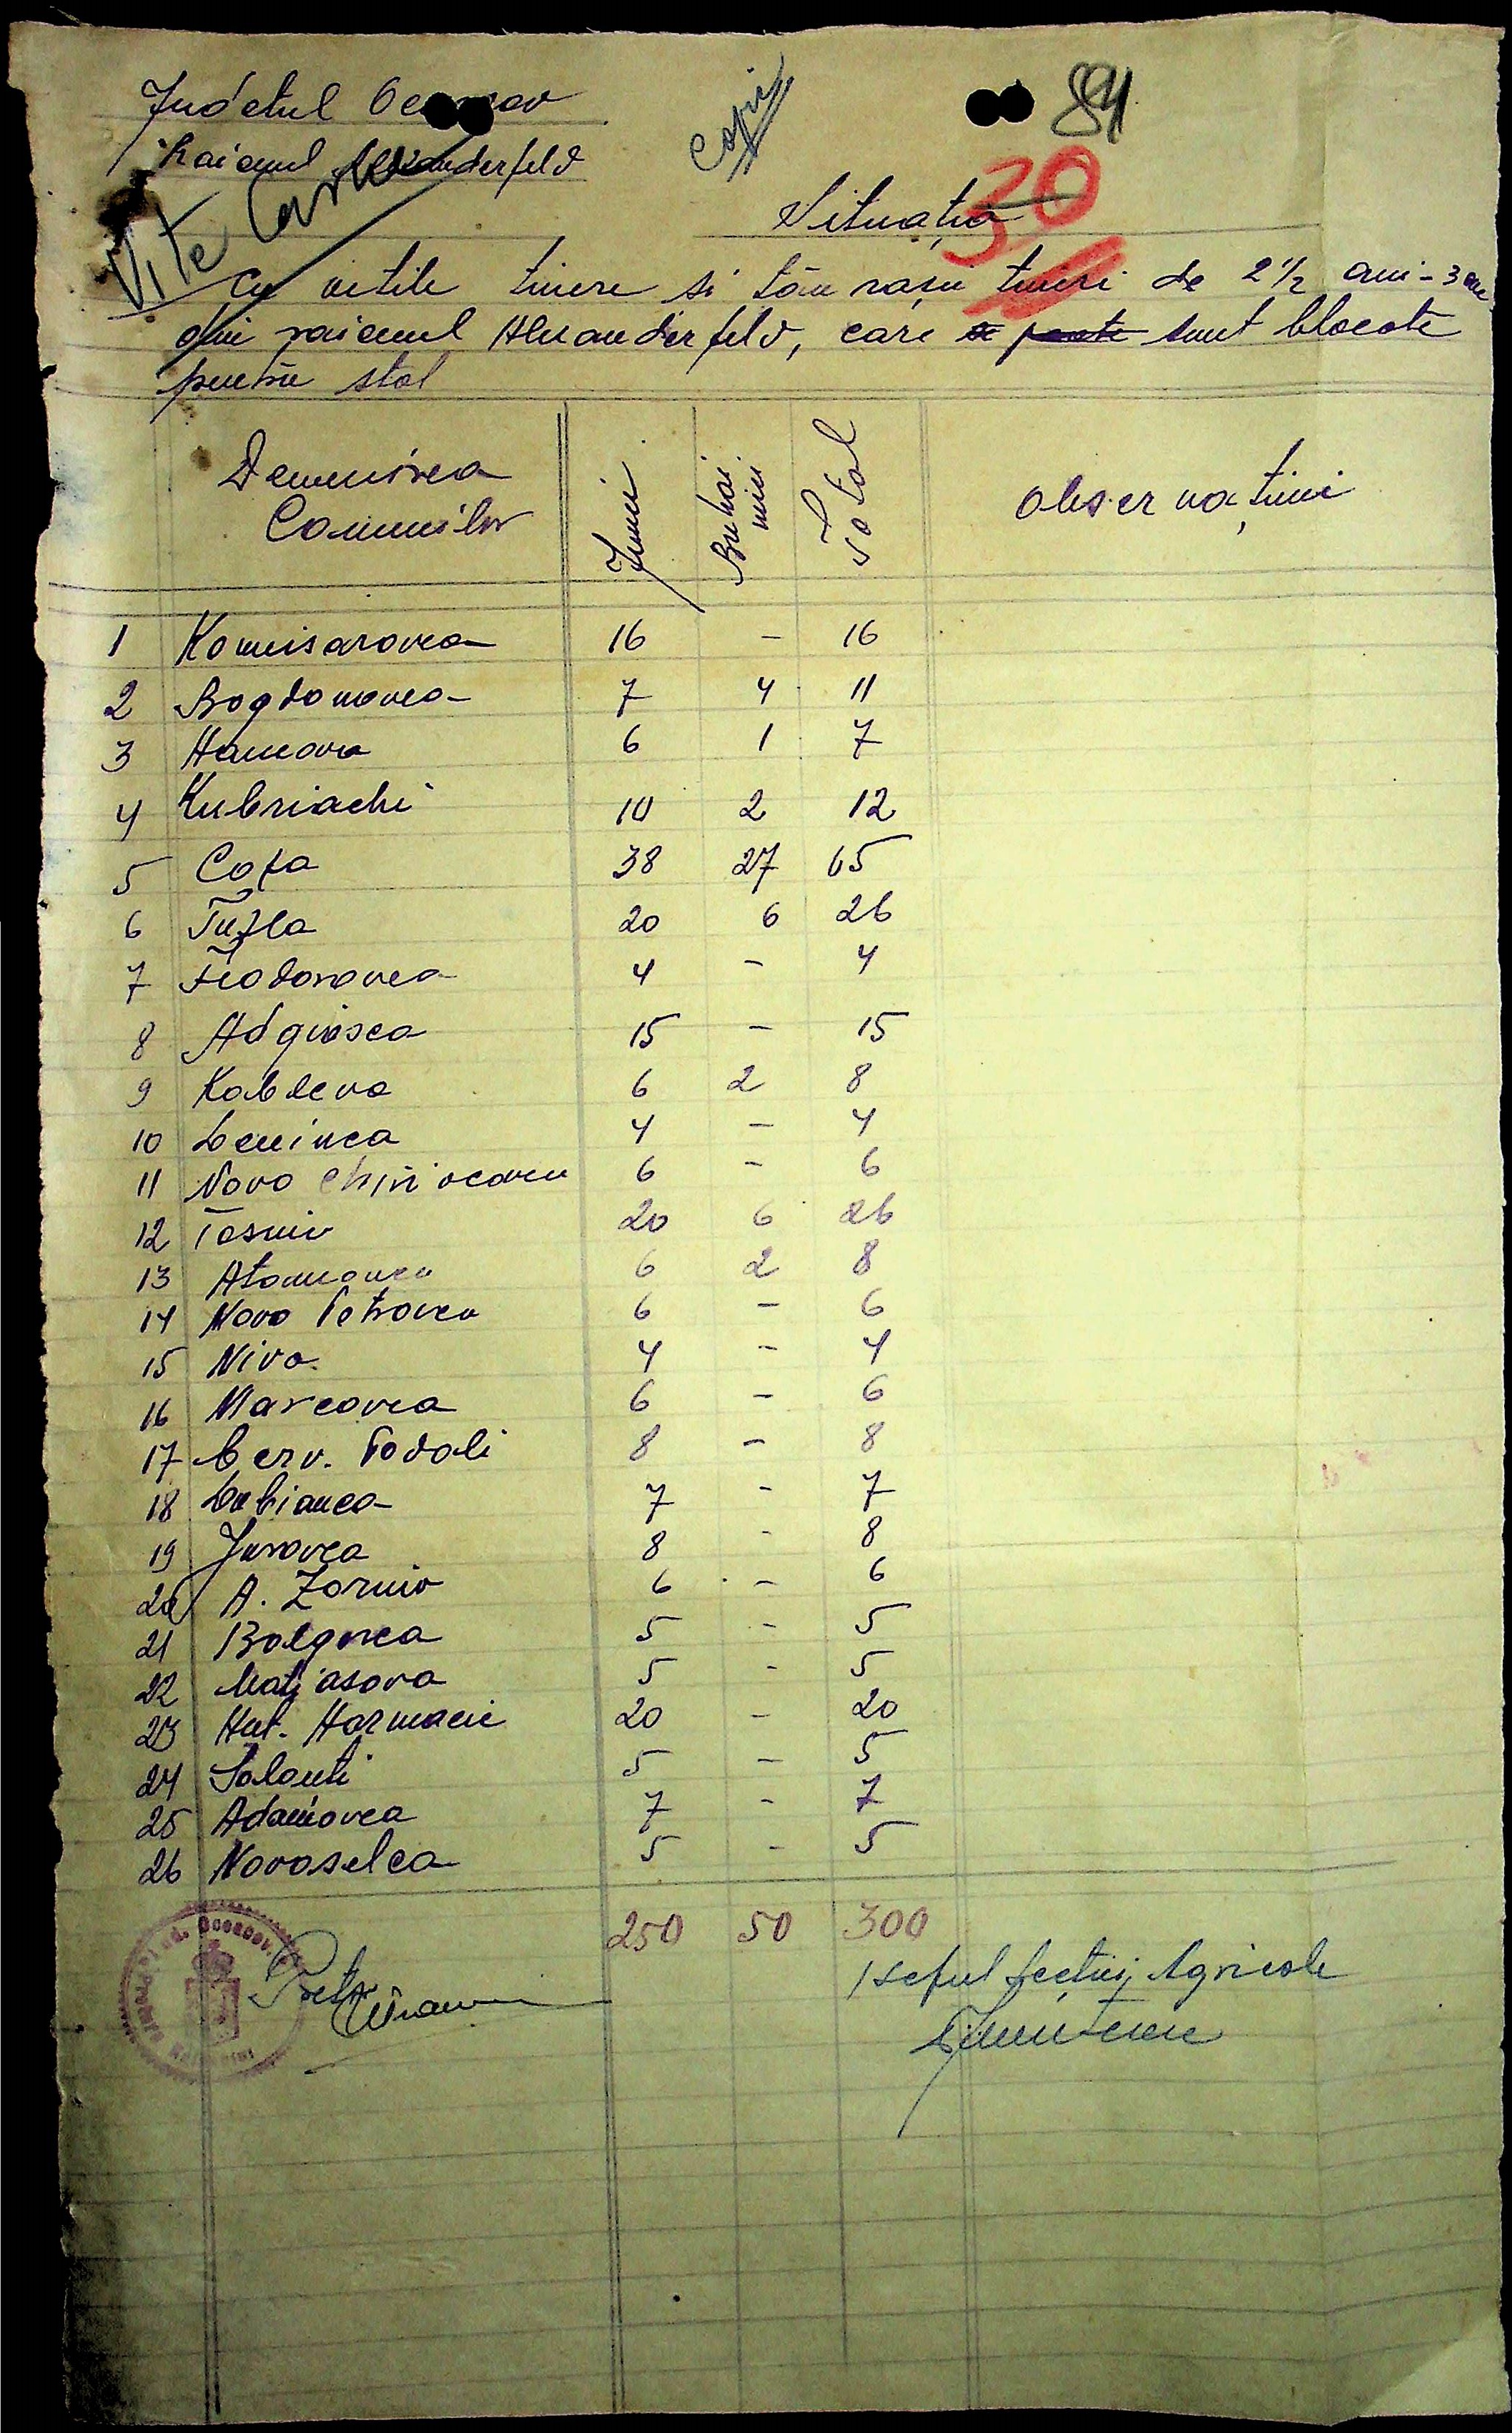 Județul Oceacov
Raionul Alexanderfeld
Copie
84
30
Vite Carne
Situația
Cu vitile tinere si tăurașii tineri de 2 1/2 ani - 3 ani
din raionul Alexanderfeld, care se poate sunt blocate
pentru stat
Denumirea Comunilor Junci Buhai mici Total Observațiuni
1 Komisarovca 16 - 16
2 Bogdanovca 7 4 11
3 Hamovca 6 1 7
4 Kubriachi 10 2 12
5 Cofa 38 27 65
6 Tuzla 20 6 26
7 Feodorovca 4 - 4
8 Adgiasca 15 - 15
9 Kableva 6 2 8
10 Leninca 4 - 4
11 Novo 6 - 6
12 Tasnio 20 6 26
13 Atamanca 6 2 8
14 Novo Petrovca 6 - 6
15 Niva 4 - 4
16 Marcovca 6 - 6
17 Cerv. Podoli 8 - 8
18 Lubianca 7 - 7
19 Jurovca 8 - 8
20 A. Zornio 6 - 6
21 Bolgarca 5 - 5
22 Matiasova 5 - 5
23 Hut. Harmacii 20 - 20
24 Solonti 5 - 5
25 Adamovca 7 - 7
26 Novoselca 5 - 5
250 50 300
Pretor
/ seful secției Agricole